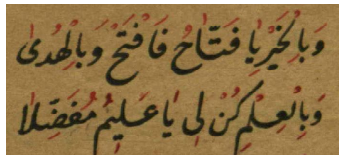 وَبِالْخَيْرِ يَا فَتَّاحُ فَافْتَحْ وَبِالْهُدٰى
وَبِالْعِلْمِ كُنْ لِى يَا عَلِيْمُ مُفَضِّلَا